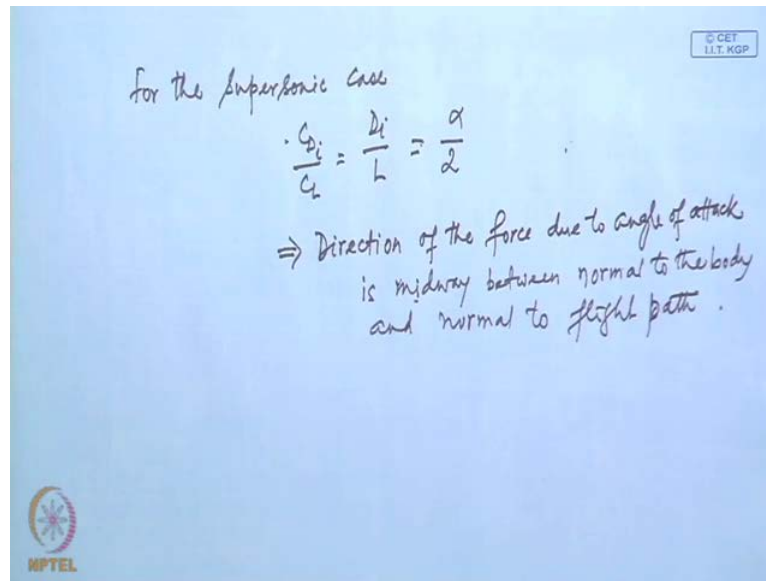 © CET
I.I.T. KGP
For the Supersonic Case
C_{Di}/C_L = Di/L = α/2
⇒ Direction of the force due to angle of attack
is midway between normal to the body
and normal to flight path.
NPTEL